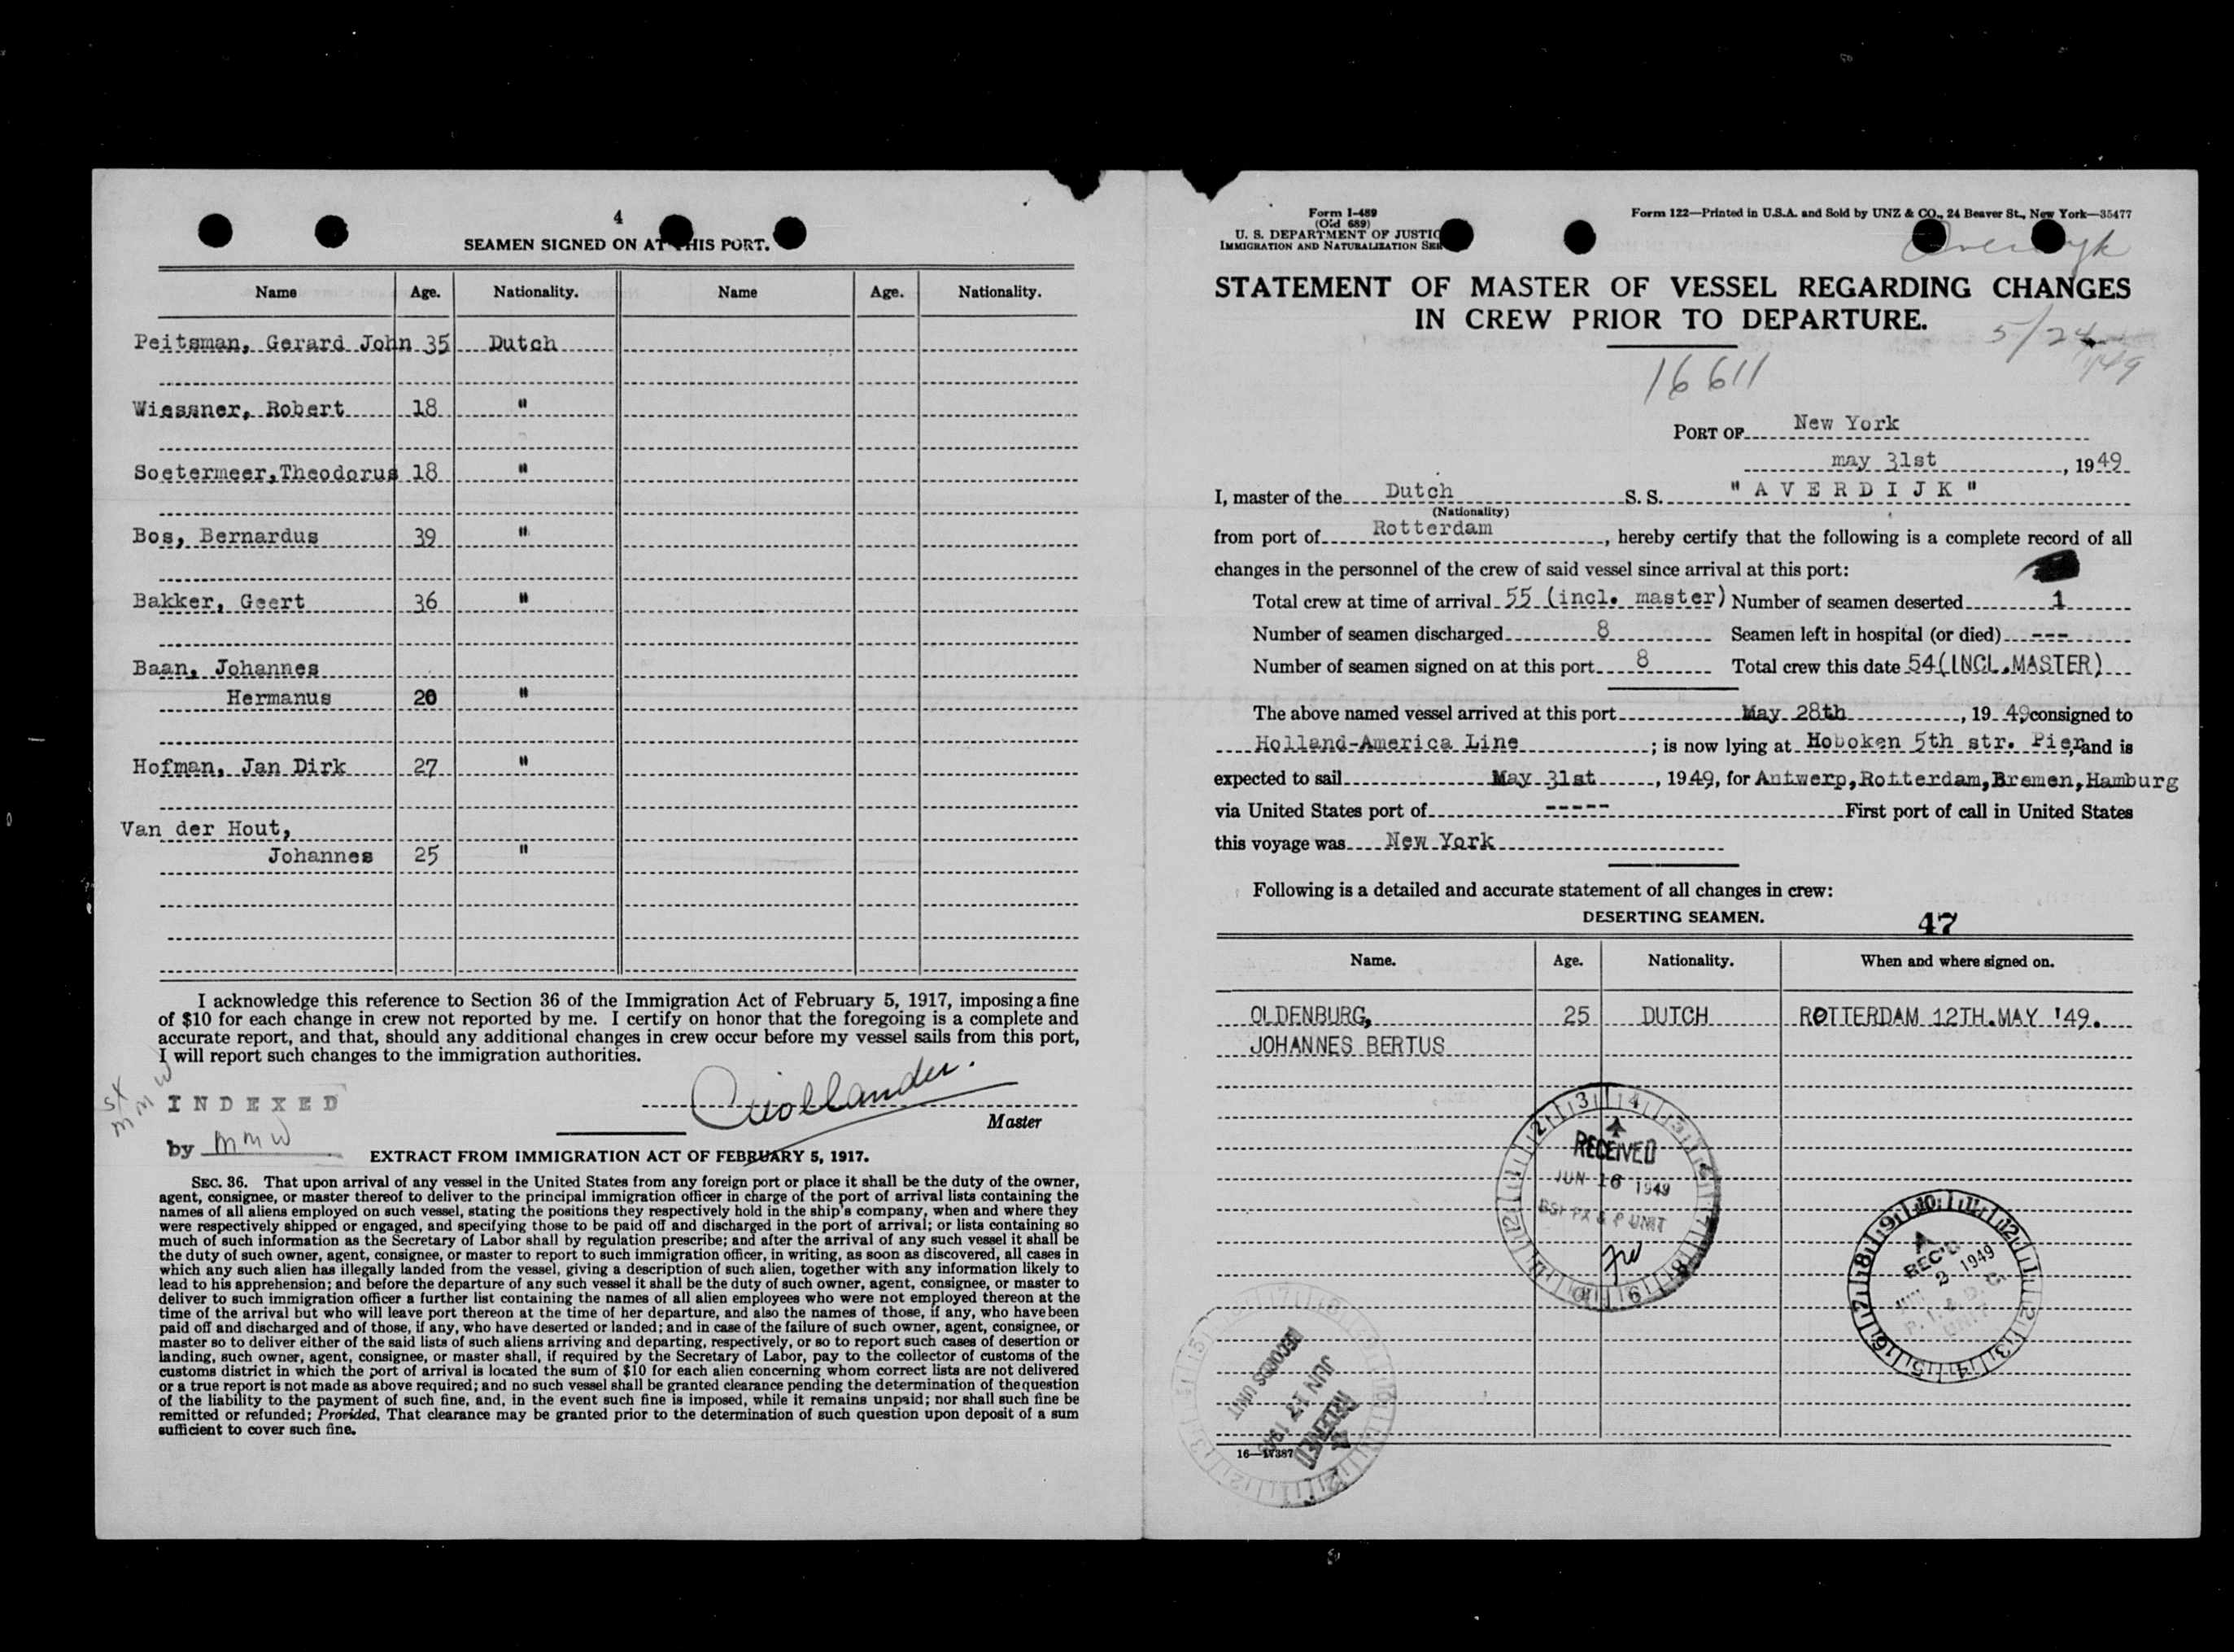 4
SEAMEN SIGNED ON AT THIS PORT.
Name Age. Nationality. Name Age. Nationality.
Peitsman, Gerard John 35 Dutch
Wiessner, Robert 18 "
Soetermeer,Theodorus 18 "
Bos, Bernardus 39 "
Bakker, Geert 36 "
Baan, Johannes
Hermanus 20 "
Hofman, Jan Dirk 27 "
Van der Hout,
Johannes 25 "
I acknowledge this reference to Section 36 of the Immigration Act of February 5, 1917, imposing a fine
of $10 for each change in crew not reported by me. I certify on honor that the foregoing is a complete and
accurate report, and that, should any additional changes in crew occur before my vessel sails from this port,
I will report such changes to the immigration authorities.
INDEXED
by mmw
Master
EXTRACT FROM IMMIGRATION ACT OF FEBRUARY 5, 1917.
SEC. 36. That upon arrival of any vessel in the United States from any foreign port or place it shall be the duty of the owner,
agent, consignee, or master thereof to deliver to the principal immigration officer in charge of the port of arrival lists containing the
names of all aliens employed on such vessel, stating the positions they respectively hold in the ship's company, when and where they
were respectively shipped or engaged, and specifying those to be paid off and discharged in the port of arrival; or lists containing so
much of such information as the Secretary of Labor shall by regulation prescribe; and after the arrival of any such vessel it shall be
the duty of such owner, agent, consignee, or master to report to such immigration officer, in writing, as soon as discovered, all cases in
which any such alien has illegally landed from the vessel, giving a description of such alien, together with any information likely to
lead to his apprehension; and before the departure of any such vessel it shall be the duty of such owner, agent, consignee, or master to
deliver to such immigration officer a further list containing the names of all alien employees who were not employed thereon at the
time of the arrival but who will leave port thereon at the time of her departure, and also the names of those, if any, who have been
paid off and discharged and of those, if any, who have deserted or landed; and in case of the failure of such owner, agent, consignee, or
master so to deliver either of the said lists of such aliens arriving and departing, respectively, or so to report such cases of desertion or
landing, such owner, agent, consignee, or master shall, if required by the Secretary of Labor, pay to the collector of customs of the
customs district in which the port of arrival is located the sum of $10 for each alien concerning whom correct lists are not delivered
or a true report is not made as above required; and no such vessel shall be granted clearance pending the determination of the question
of the liability to the payment of such fine, and, in the event such fine is imposed, while it remains unpaid; nor shall such fine be
remitted or refunded; Provided, That clearance may be granted prior to the determination of such question upon deposit of a sum
sufficient to cover such fine.
Form I-489
(Old 689)
U. S. DEPARTMENT OF JUSTIC
IMMIGRATION AND NATURALIZATION SER
Form 122—Printed in U.S.A. and Sold by UNZ & CO., 24 Beaver St., New York—35477
STATEMENT OF MASTER OF VESSEL REGARDING CHANGES
IN CREW PRIOR TO DEPARTURE.
5/24/49
16611
PORT OF New York
may 31st, 1949
I, master of the Dutch S. S. "AVERDIJK"
(Nationality)
from port of Rotterdam, hereby certify that the following is a complete record of all
changes in the personnel of the crew of said vessel since arrival at this port:
Total crew at time of arrival 55 (incl. master) Number of seamen deserted 1
Number of seamen discharged 8 Seamen left in hospital (or died) ---
Number of seamen signed on at this port 8 Total crew this date 54(INCL.MASTER)
The above named vessel arrived at this port May 28th, 1949 consigned to
Holland-America Line; is now lying at Hoboken 5th str. Pier, and is
expected to sail May 31st, 1949, for Antwerp,Rotterdam,Bremen,Hamburg
via United States port of ----- First port of call in United States
this voyage was New York
Following is a detailed and accurate statement of all changes in crew:
DESERTING SEAMEN.
47
Name. Age. Nationality. When and where signed on.
OLDENBURG, 25 DUTCH ROTTERDAM 12TH.MAY '49.
JOHANNES BERTUS
RECEIVED
JUN 16 1949
REC'D
2 1949
UNIT
RECORDS UNIT
JUN 17 1949
RECEIVED
16—17387